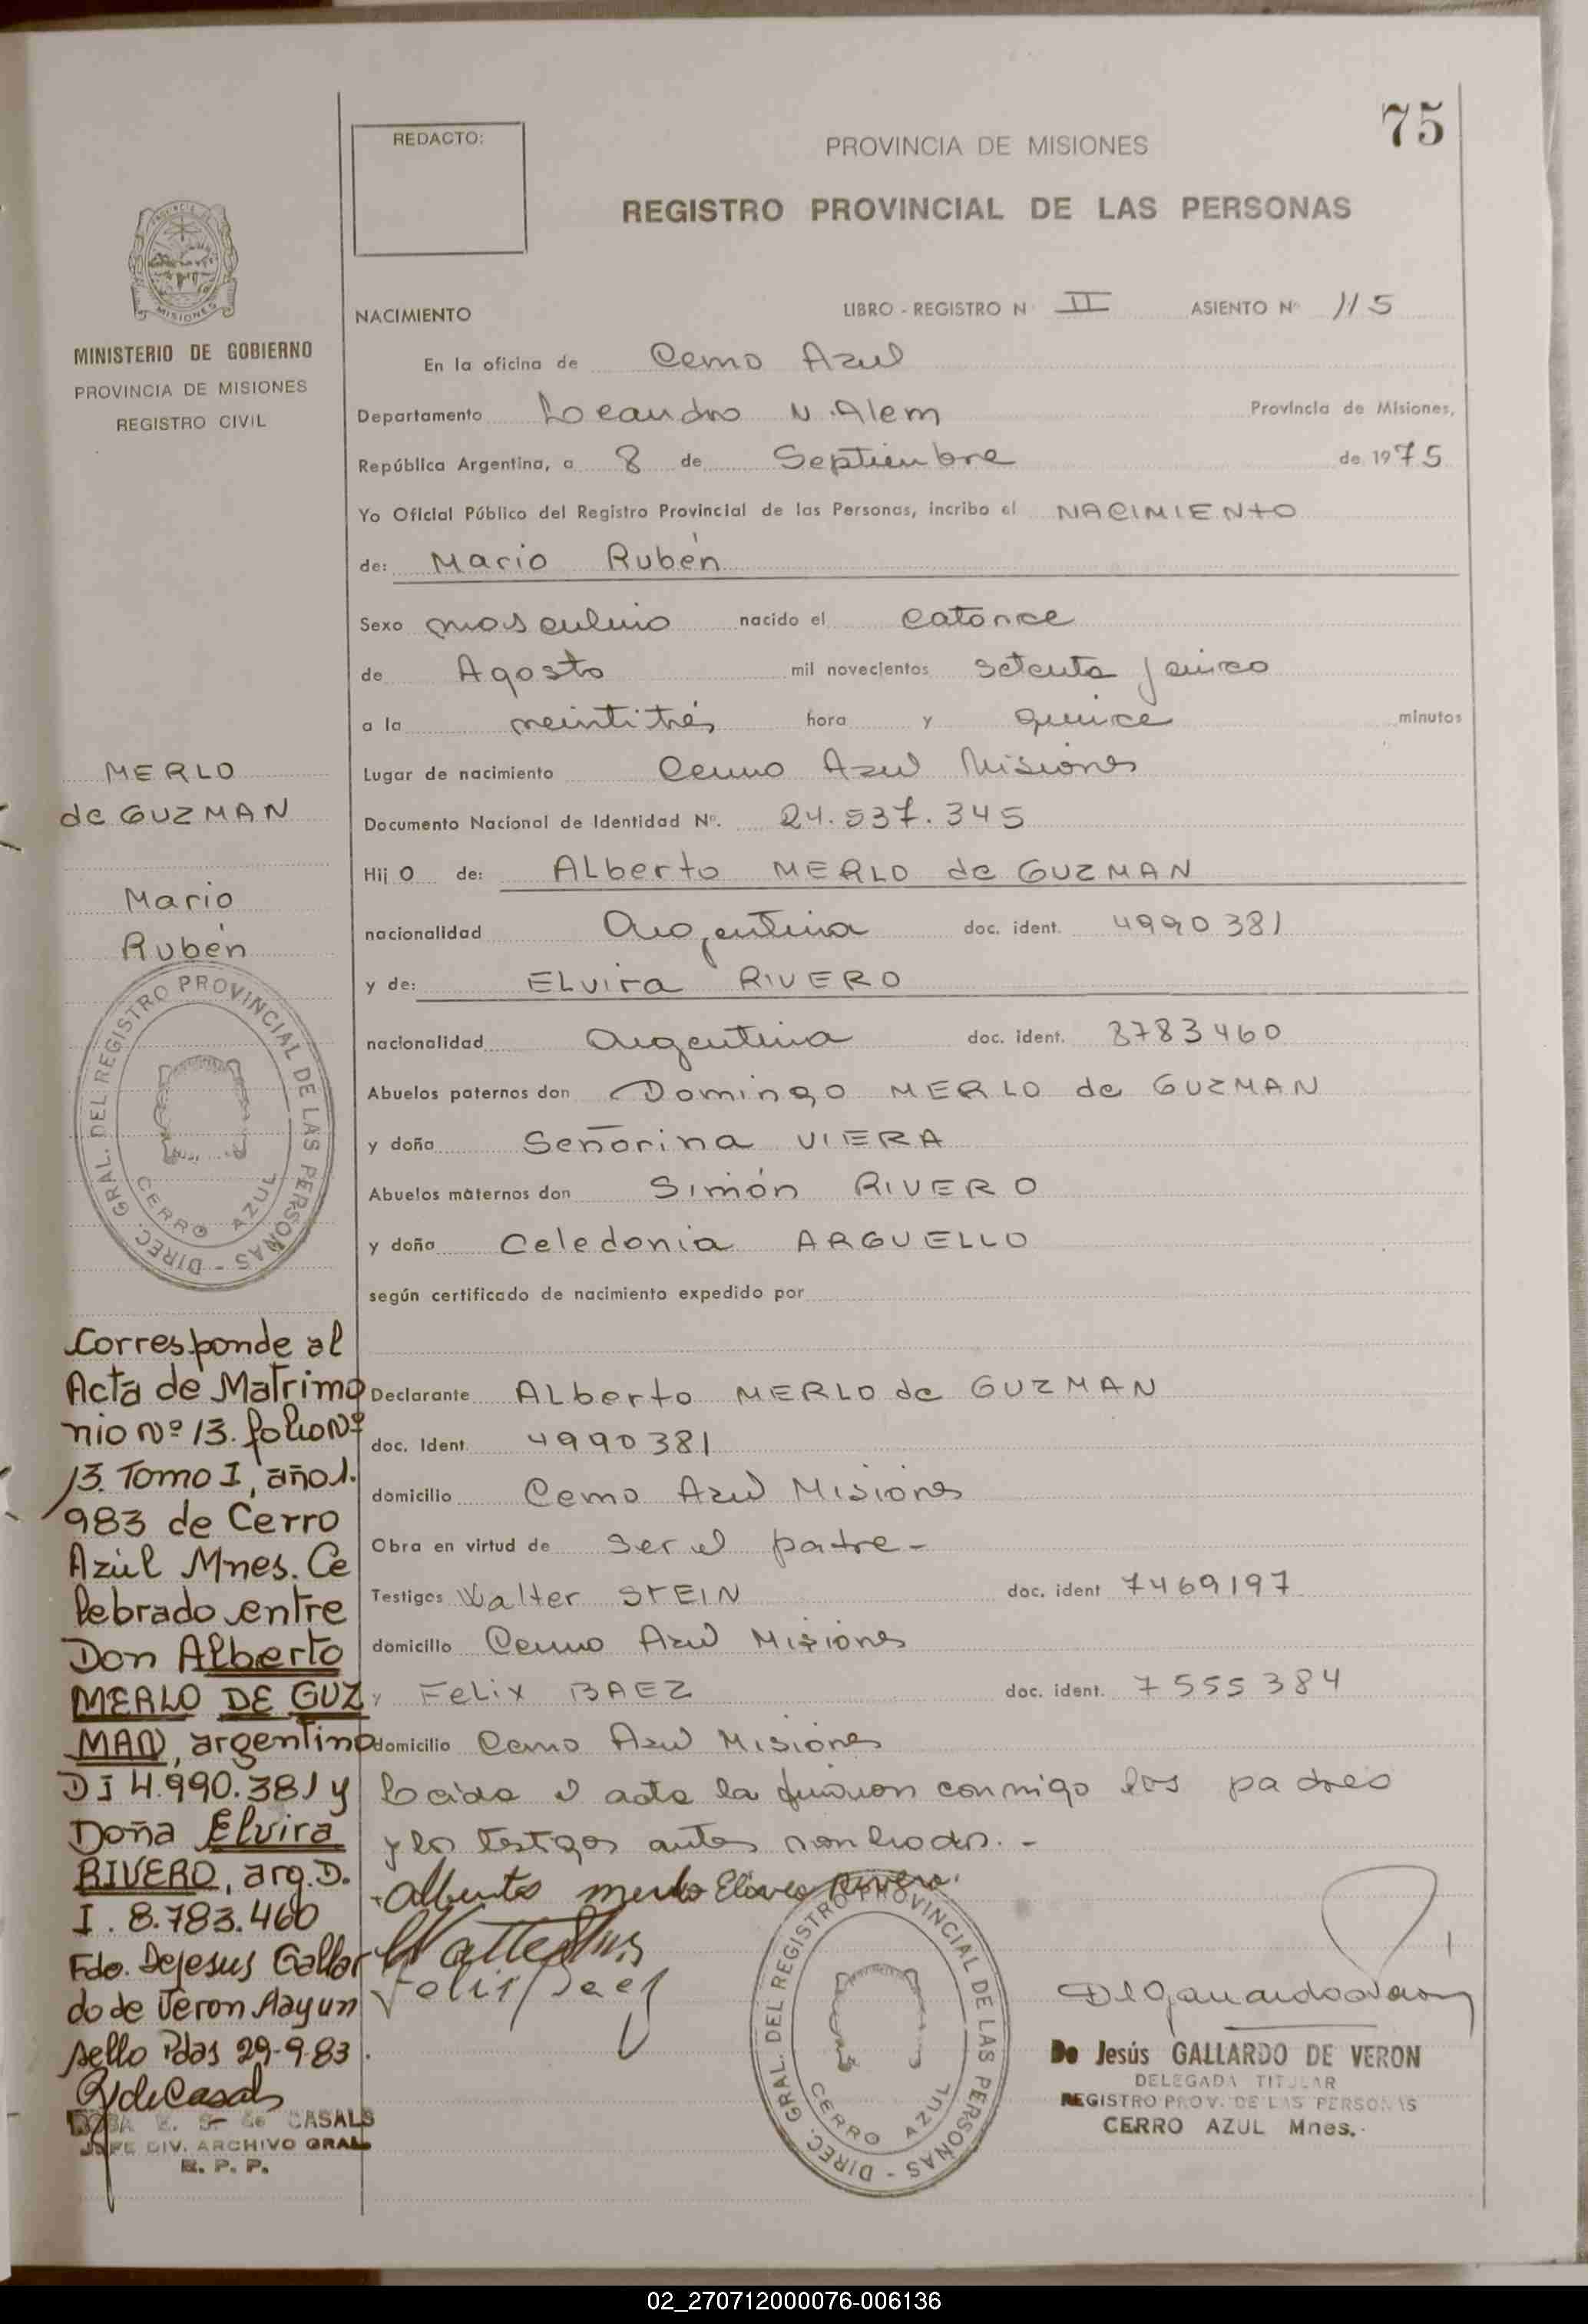 75
REDACTO:
PROVINCIA DE MISIONES
REGISTRO PROVINCIAL DE LAS PERSONAS
MISIONES
MINISTERIO DE GOBIERNO
PROVINCIA DE MISIONES
REGISTRO CIVIL
NACIMIENTO LIBRO - REGISTRO N II ASIENTO Nº 115
En la oficina de Cerro Azul
Departamento Leandro N. Alem Provincia de Misiones,
República Argentina, a 8 de Septiembre de 1975
Yo Oficial Público del Registro Provincial de las Personas, incribo el NACIMIENTO
de: Mario Rubén
Sexo masculino nacido el catorce
de Agosto mil novecientos setenta y cinco
a la veintitrés hora y quince minutos
Lugar de nacimiento Cerro Azul Misiones
Documento Nacional de Identidad Nº. 24.537.345
Hij o de: Alberto MERLO de GUZMAN
nacionalidad Argentina doc. ident. 4990381
y de: Elvira RIVERO
nacionalidad Argentina doc. ident. 8783460
Abuelos paternos don Domingo MERLO de GUZMAN
y doña Señorina VIERA
Abuelos maternos don Simón RIVERO
y doña Celedonia ARGUELLO
según certificado de nacimiento expedido por
Declarante Alberto MERLO de GUZMAN
doc. Ident 4990381
domicilio Cerro Azul Misiones
Obra en virtud de ser el padre -
Testigos Walter STEIN doc. ident 7469197
domicilio Cerro Azul Misiones
y Felix BAEZ doc. ident. 7555384
domicilio Cerro Azul Misiones
Leida el acta la firman conmigo los padres
y los testigos antes nombrados. -
Alberto Merlo Elvira Rivero
Felix Baez
DIREC. GRAL. DEL REGISTRO PROVINCIAL DE LAS PERSONAS -
CERRO AZUL
De Jesús GALLARDO DE VERON
DELEGADA TITULAR
REGISTRO PROV. DE LAS PERSONAS
CERRO AZUL Mnes.
MERLO
de GUZMAN
Mario
Rubén
DIREC. GRAL. DEL REGISTRO PROVINCIAL DE LAS PERSONAS -
CERRO AZUL
Corresponde al
Acta de Matrimo
nio Nº 13. folio Nº
13. Tomo I, año 1.
983 de Cerro
Azul Mnes. Ce
lebrado entre
Don Alberto
MERLO DE GUZ
MAN, argentino
DI 4.990.381 y
Doña Elvira
RIVERO, arg. D.
I. 8.783.460
Fdo. Dejesus Gallar
do de Veron Hay un
sello Pdas 29-9-83
de CASALS
JEFE DIV. ARCHIVO GRAL
R. P. P.
02_270712000076-006136